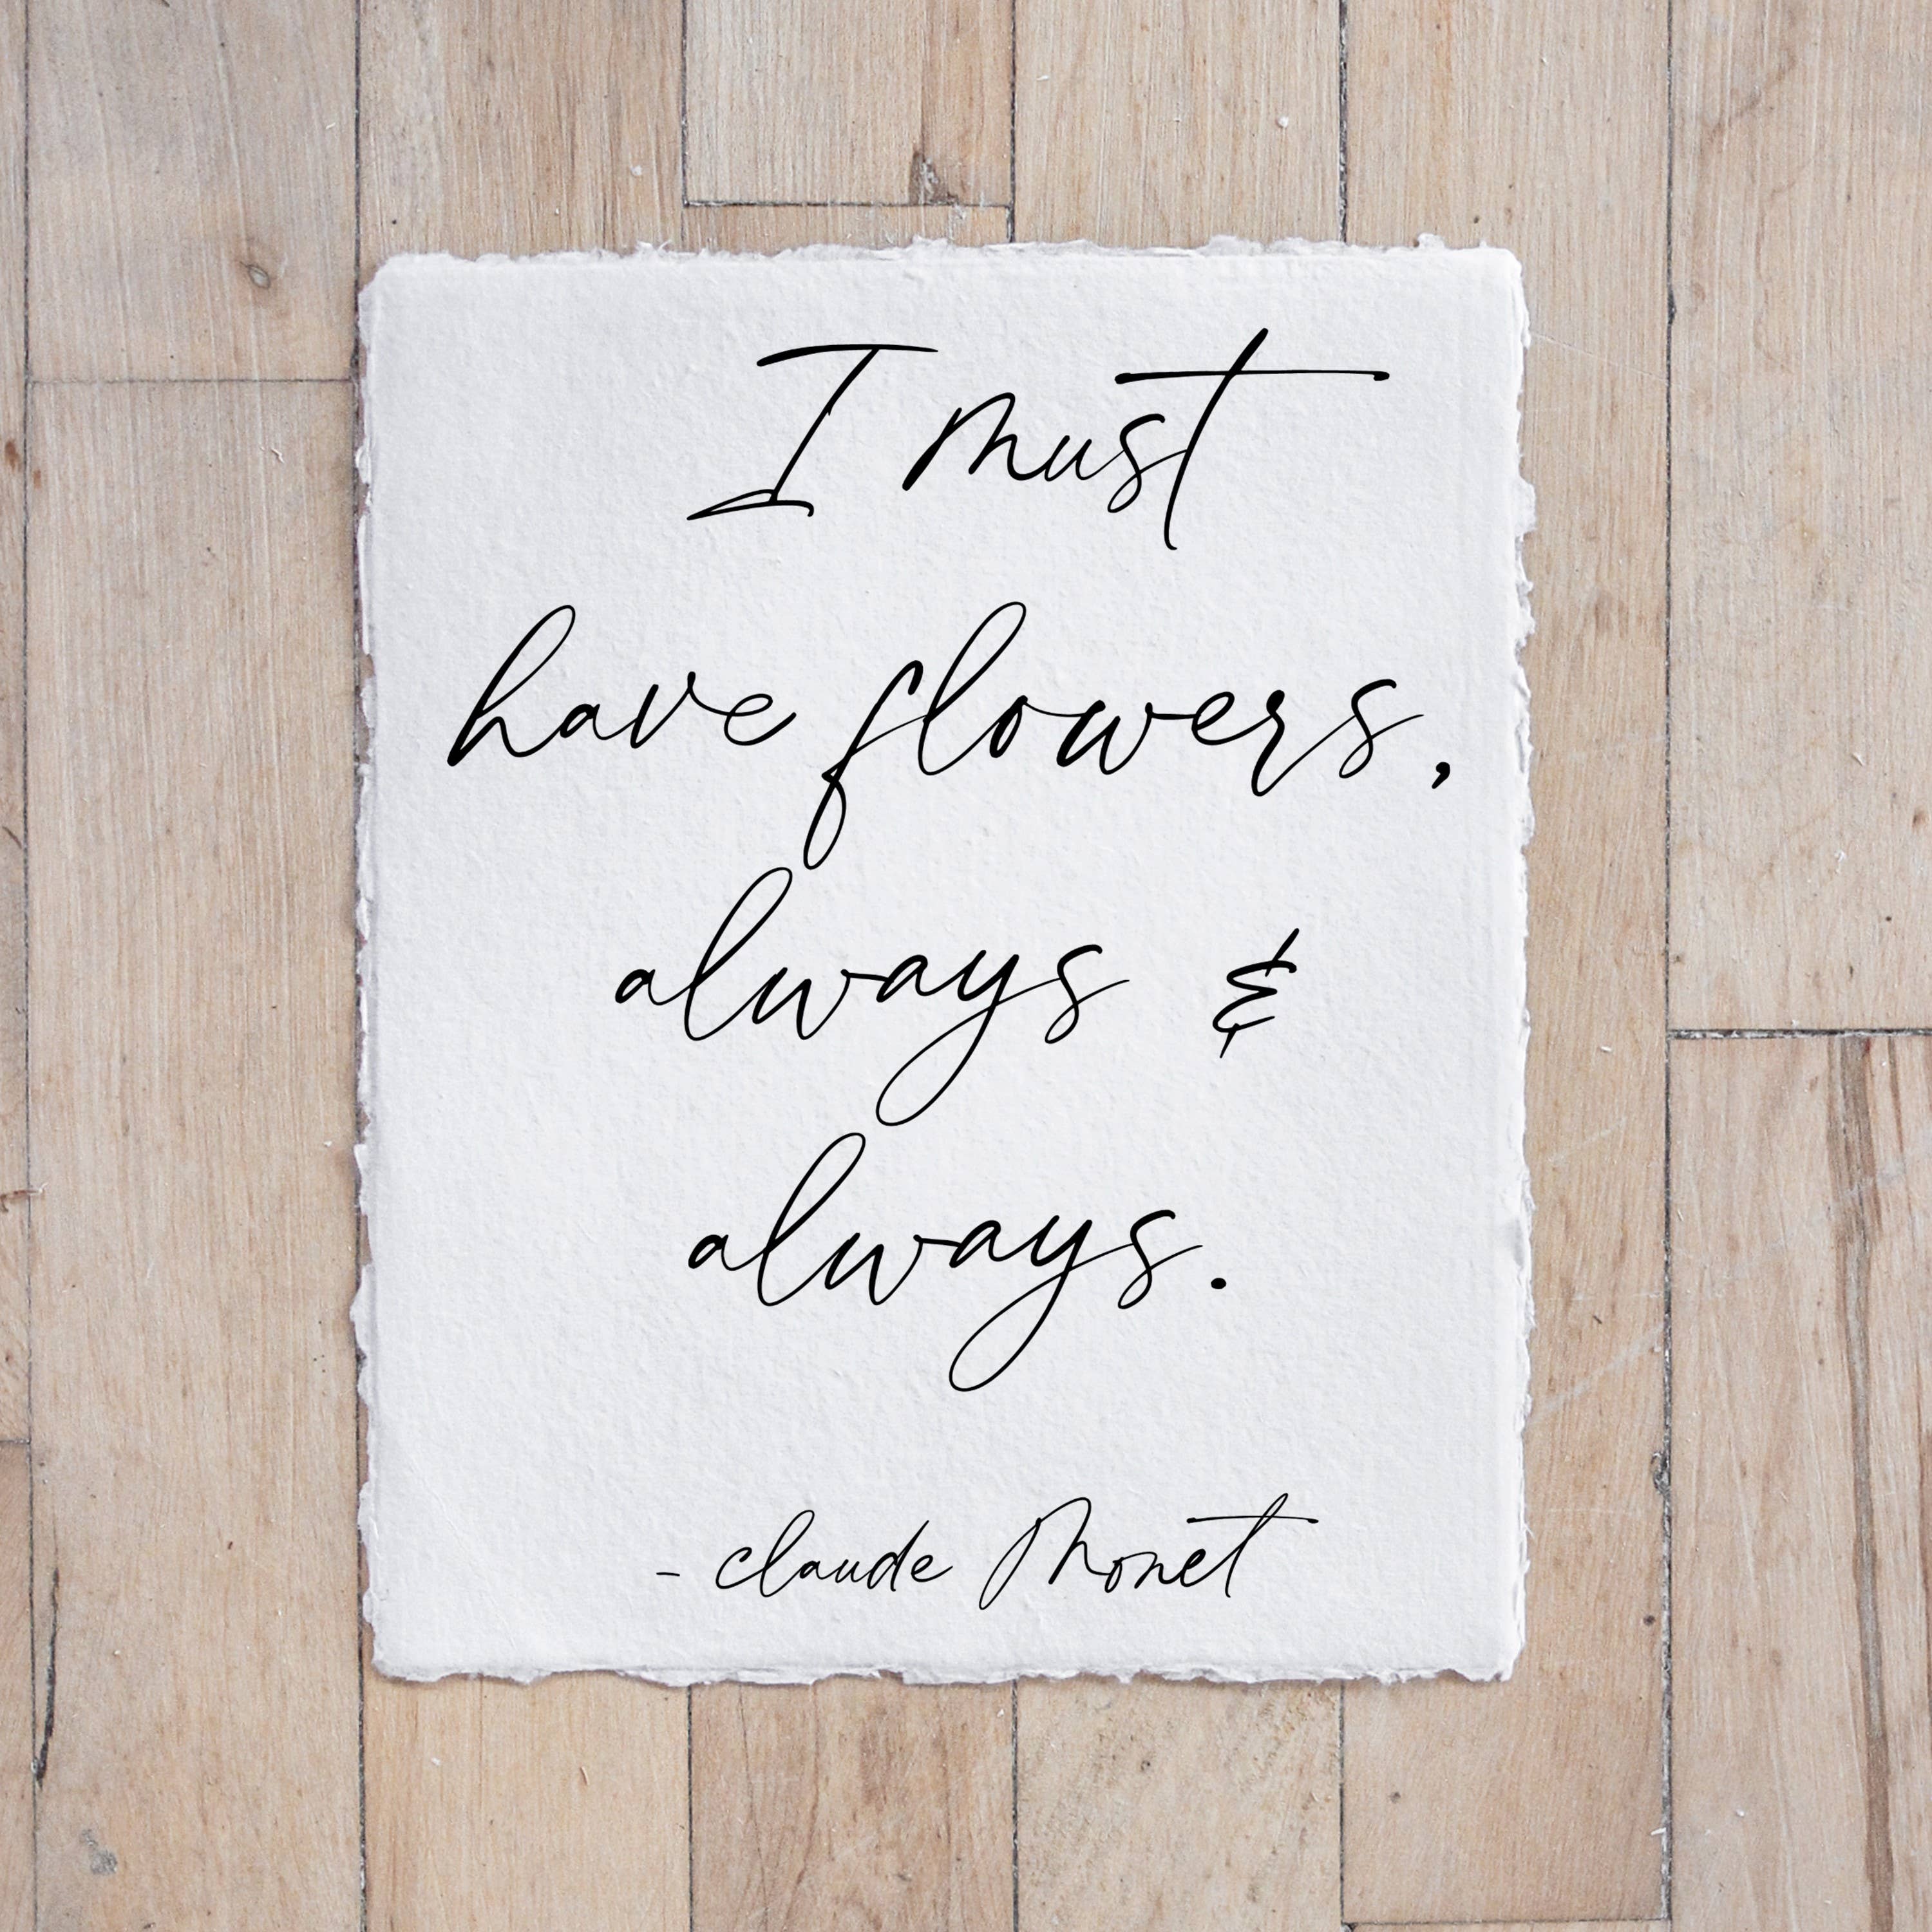 I must
have flowers,
always &
always.
- claude Monet